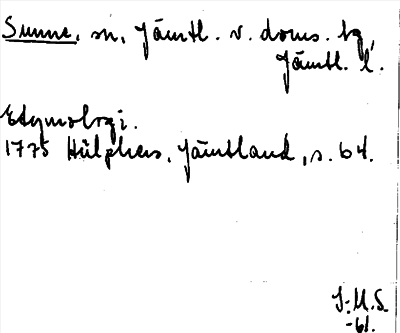 Sunne, sn, Jämtl. v. doms. tg,
Jämtl. l.
Etymologi.
1775 Hülphers, Jämtland, s. 64.
J.M.S.
-61.